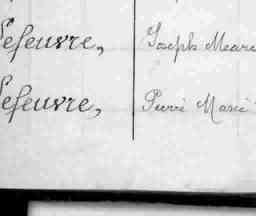 Lefeuvre, Joseph Marie
Lefeuvre, Pierre Marie